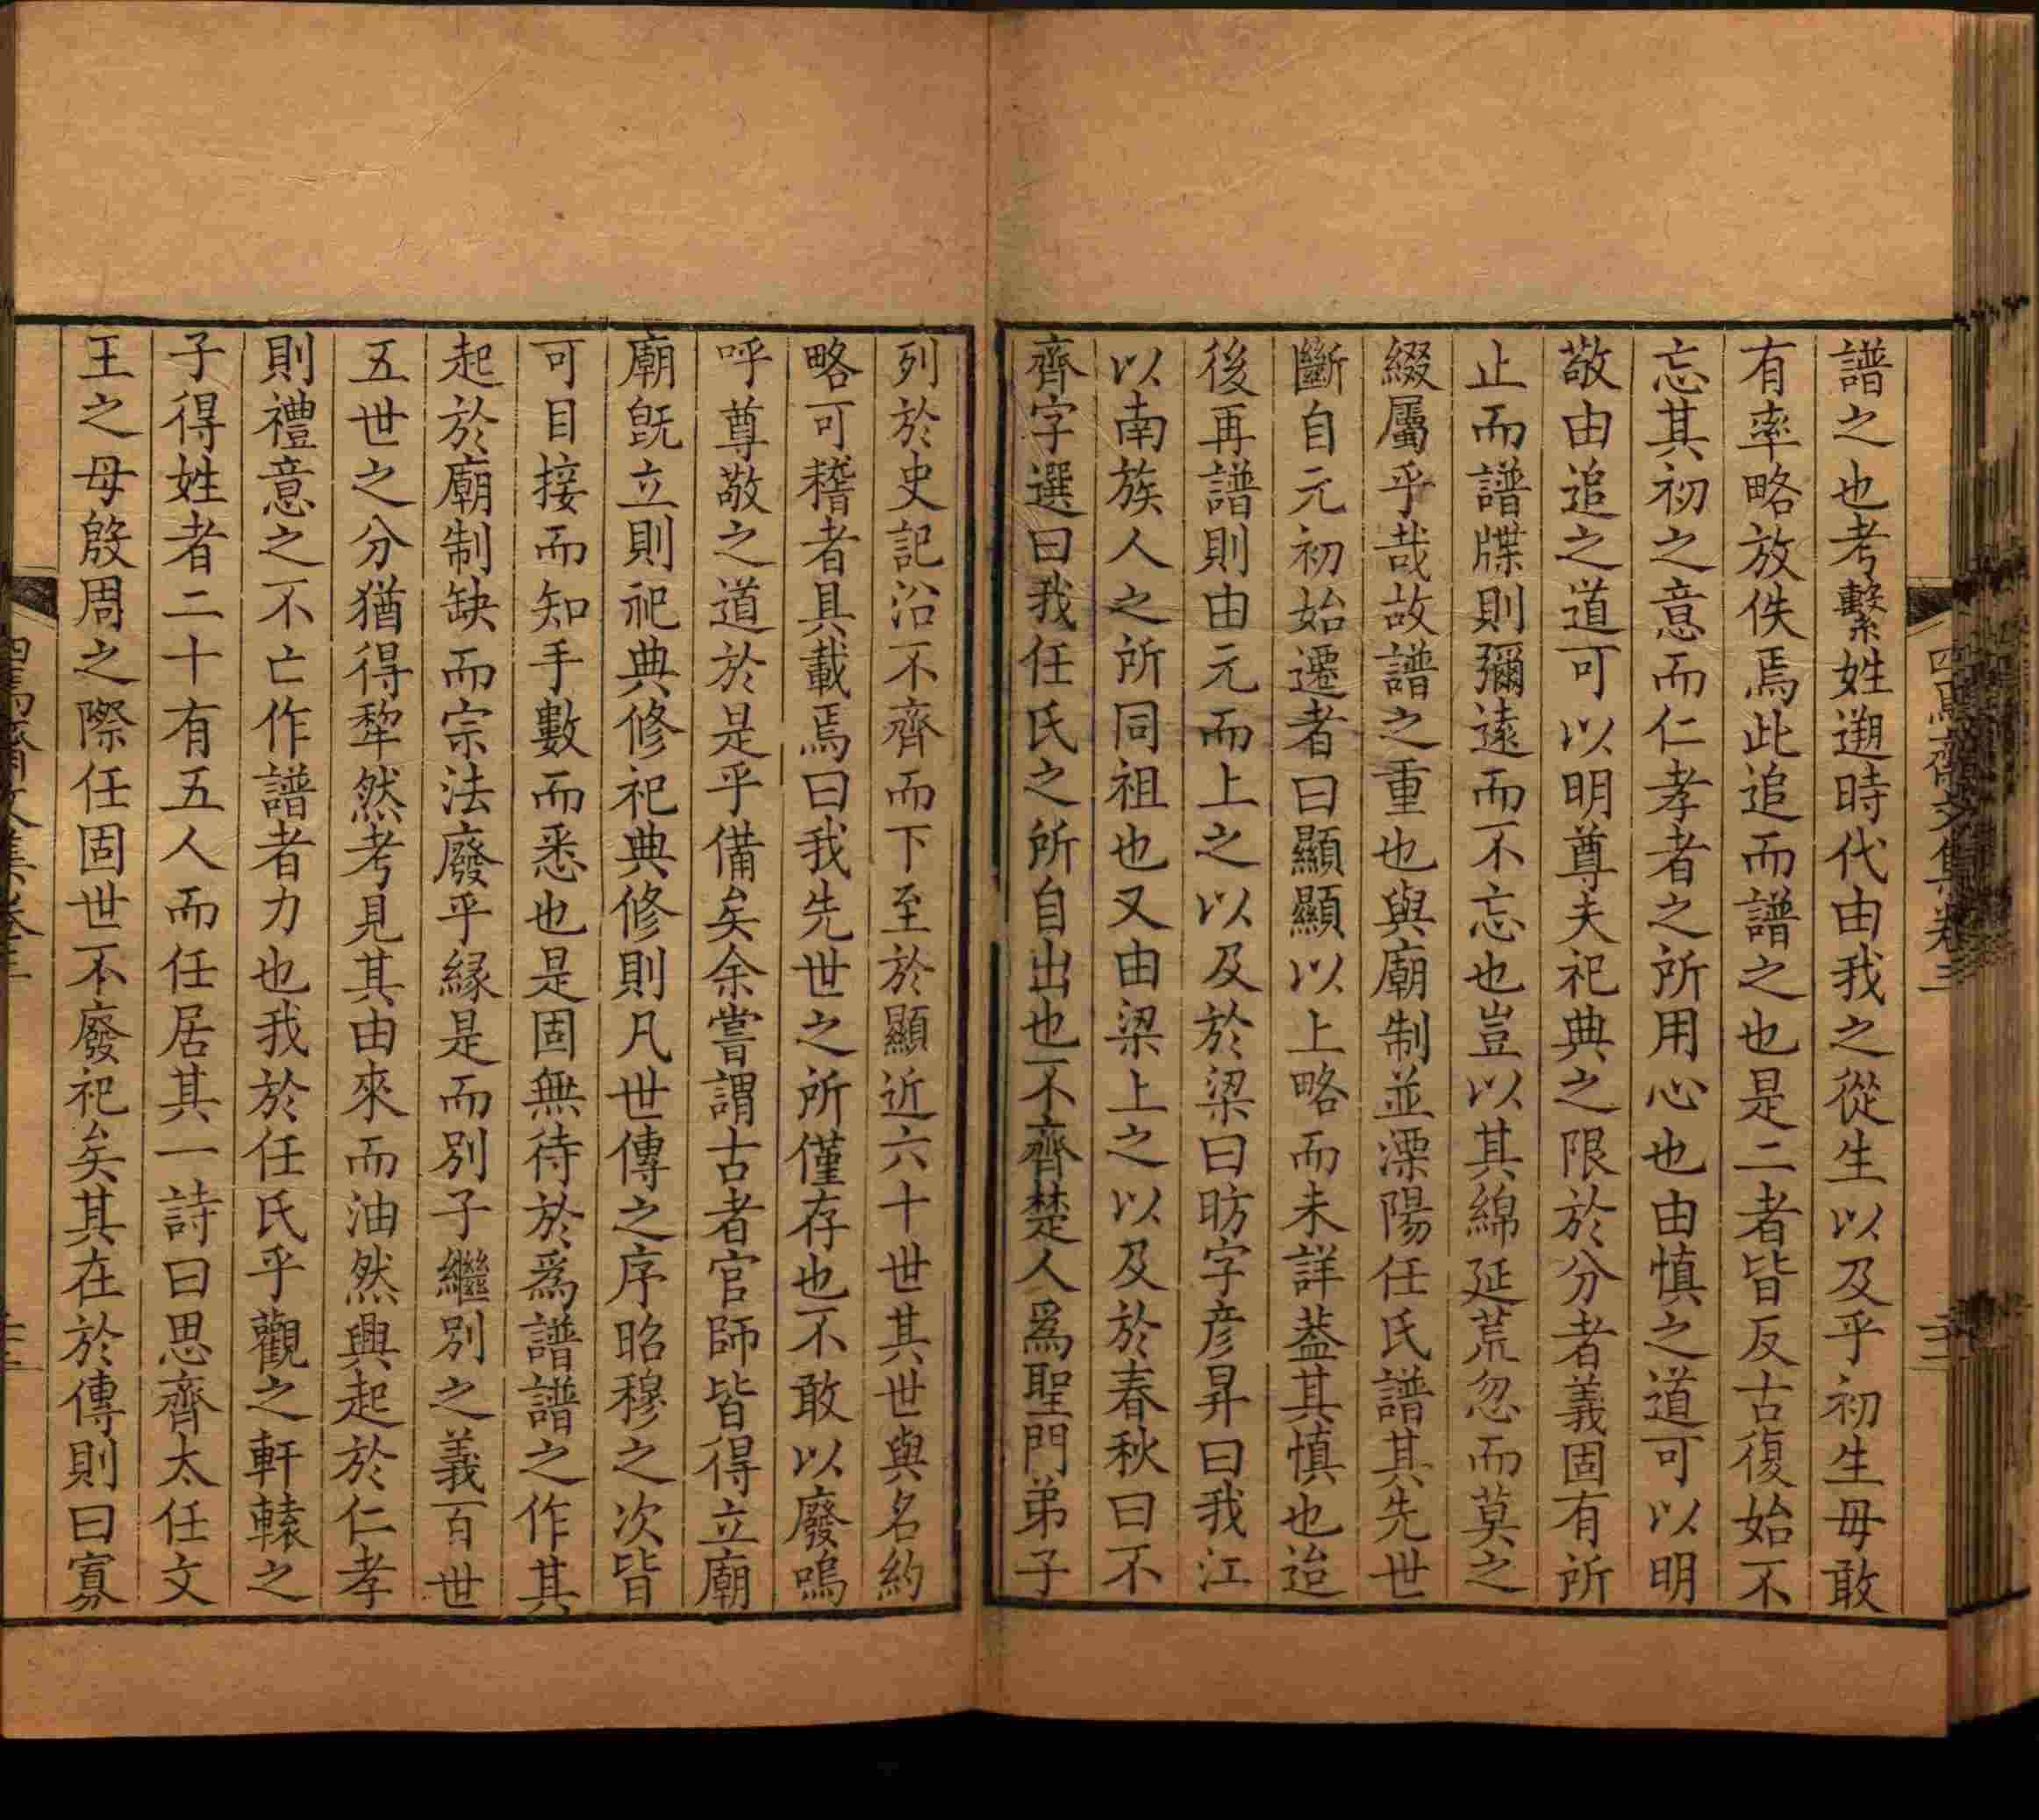 四焉齋文集卷三
譜之也考繫姓遡時代由我之從生以及乎初生毋敢
有率略放佚焉此追而譜之也是二者皆反古復始不
忘其初之意而仁孝者之所用心也由慎之道可以明
敬由追之道可以明尊夫祀典之限於分者義固有所
止而譜牒則彌遠而不忘也豈以其綿延荒忽而莫之
綴屬乎哉故譜之重也與廟制並溧陽任氏譜其先世
斷自元初始遷者曰顯顯以上略而未詳蓋其慎也迨
後再譜則由元而上之以及於梁曰昉字彦昇曰我江
以南族人之所同祖也又由梁上之以及於春秋曰不
齊字選曰我任氏之所自出也不齊楚人爲聖門弟子
列於史記沿不齊而下至於顯近六十世其世與名約
略可稽者具載焉曰我先世之所僅存也不敢以廢嗚
呼尊敬之道於是乎備矣余嘗謂古者官師皆得立廟
廟旣立則祀典修祀典修則凡世傳之序昭穆之次皆
可目接而知手數而悉也是固無待於爲譜譜之作其
起於廟制缺而宗法廢乎緣是而別子繼別之義百世
五世之分猶得犂然考見其由來而油然興起於仁孝
則禮意之不亡作譜者力也我於任氏乎觀之軒轅之
子得姓者二十有五人而任居其一詩曰思齊太任文
王之母殷周之際任固世不廢祀矣其在於傳則曰寡
四焉齋文集卷三